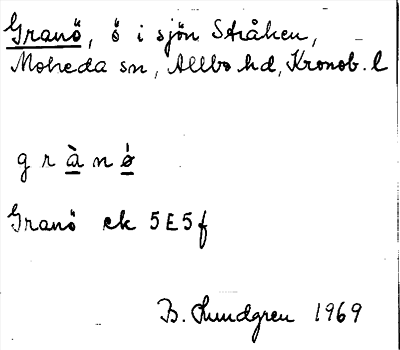 Granö, ö i sjön Stråken,
Moheda sn, Allbo hd, Kronob. l
g r à n ǿ
Granö ek 5E5f
B. Lundgren 1969